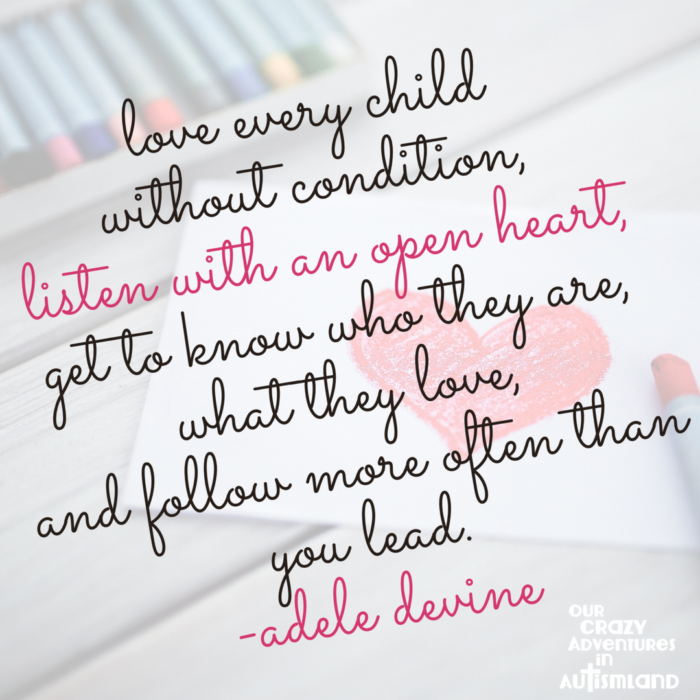 love every child
without condition,
listen with an open heart,
get to know who they are,
what they love,
and follow more often than
you lead.
-adele devine
OUR
CRAZY
ADVENTURES
in
AUTISMLAND